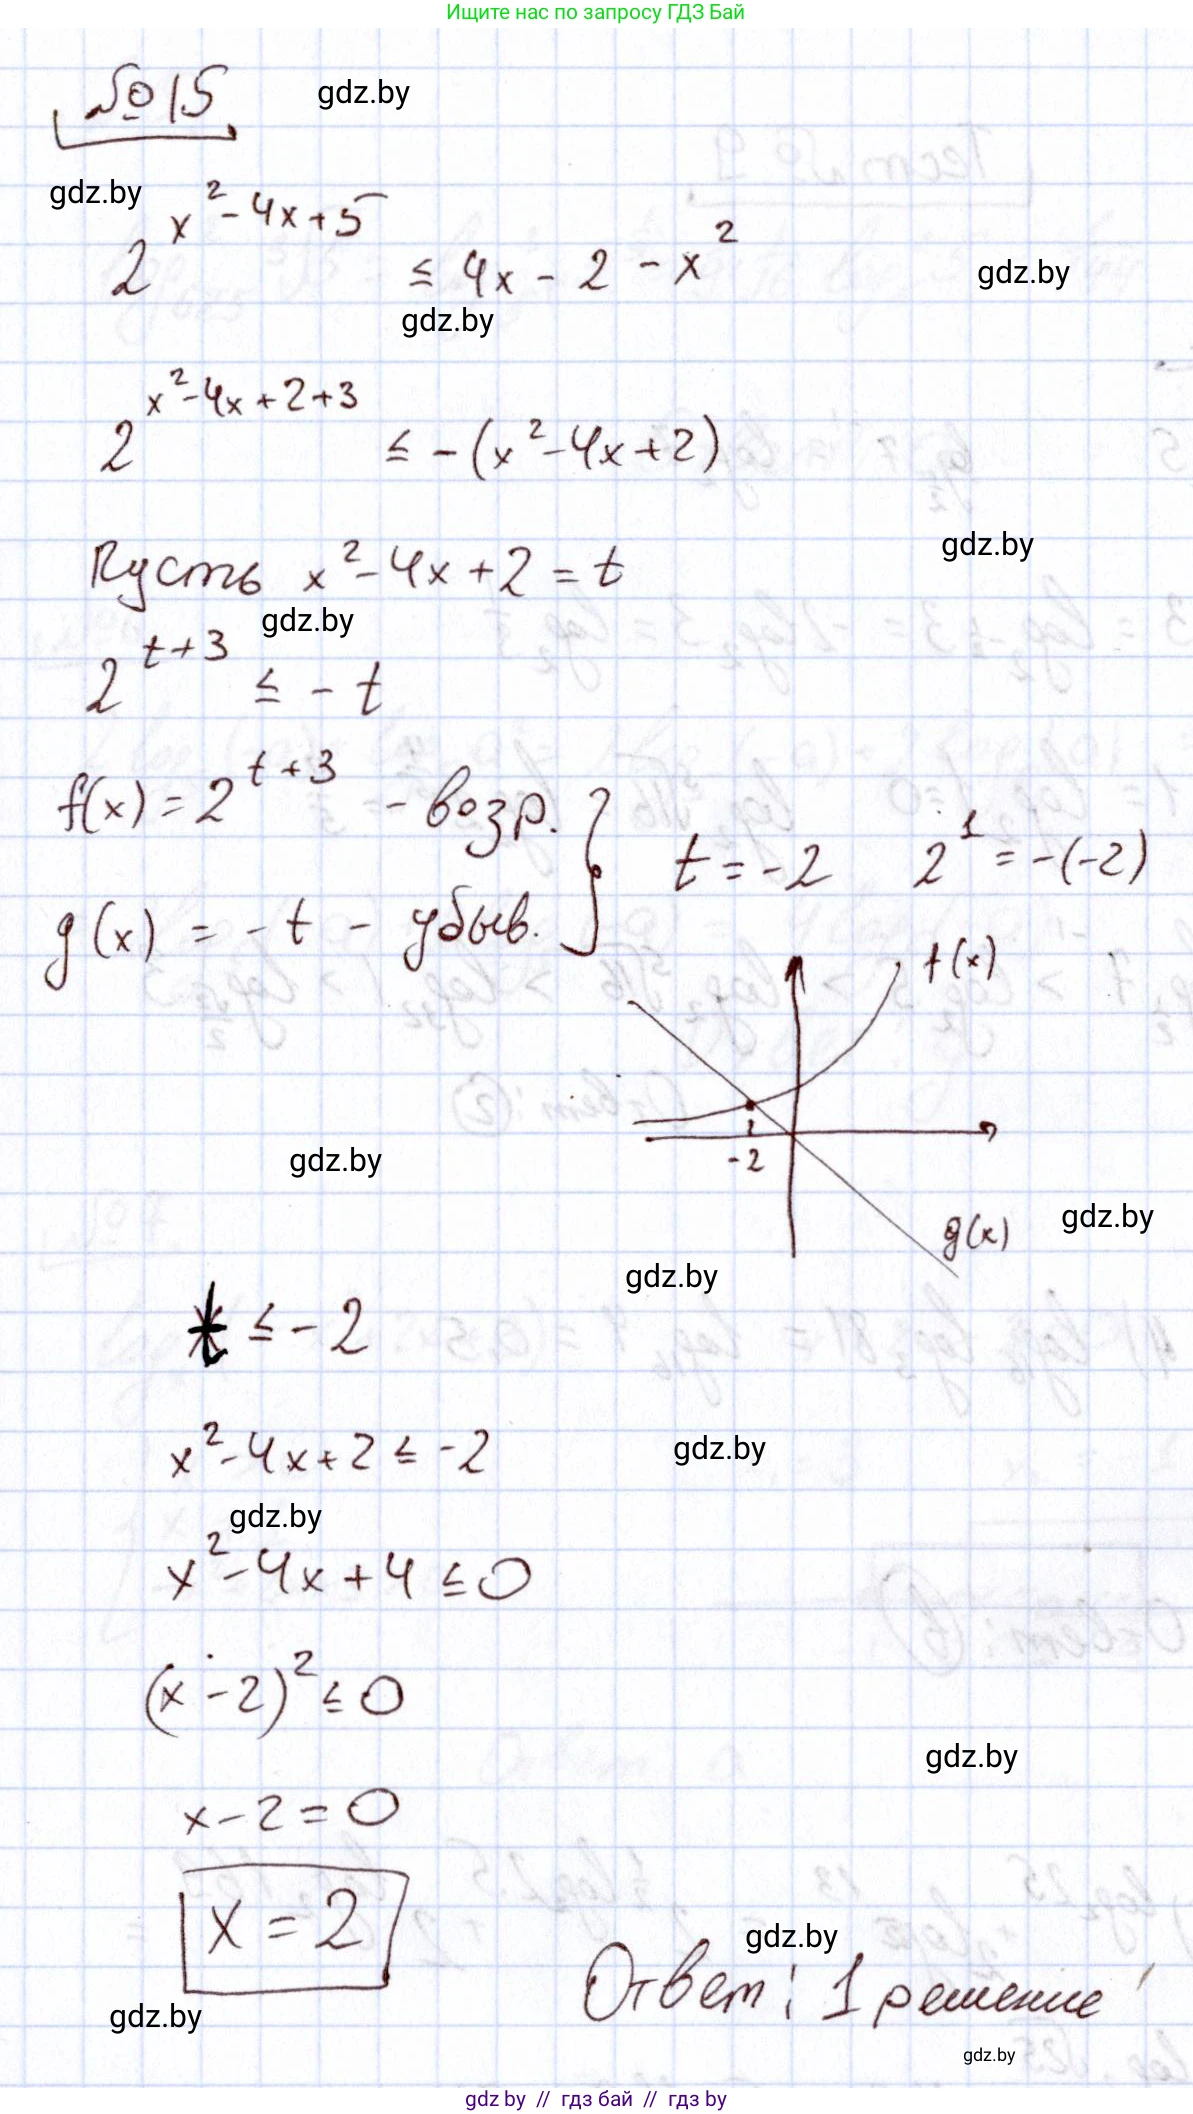 Ищите нас по запросу ГДЗ Бай
№ 15
gdz.by
gdz.by
2^(x²-4x+5) ≤ 4x - 2 - x²
gdz.by
gdz.by
2^(x²-4x+2+3) ≤ -(x²-4x+2)
gdz.by
Пусть x²-4x+2=t
gdz.by
2^(t+3) ≤ -t
f(x) = 2^(t+3) - возр.
g(x) = -t - убыв.
t = -2 2¹ = -(-2)
f(x)
-2
g(x)
gdz.by
gdz.by
gdz.by
t ≤ -2
x²-4x+2 ≤ -2
gdz.by
gdz.by
x²-4x+4 ≤ 0
(x-2)² ≤ 0
gdz.by
x-2=0
x=2
gdz.by
Ответ: 1 решение
gdz.by
gdz.by
gdz by // гдз бай // гдз by